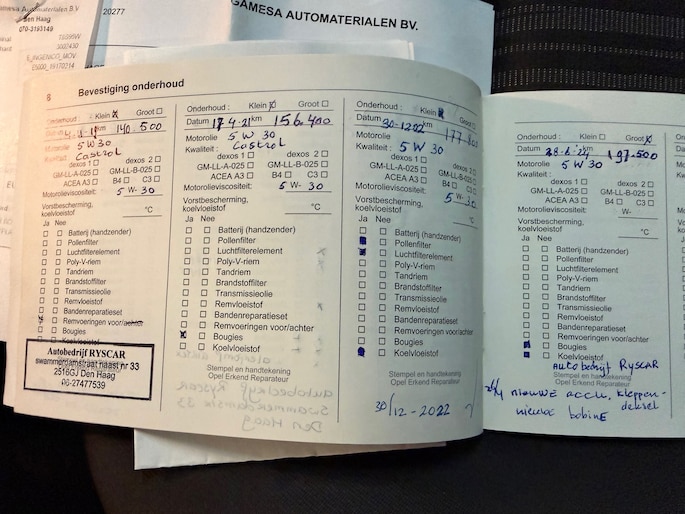 20277
GAMESA AUTOMATERIALEN BV.
Den Haag
070-3193149
T6095W
3002430
8
Bevestiging onderhoud
Onderhoud : Klein Groot
140.500
Motorolie 5 W 30
Castrol
dexos 1 dexos 2
GM-LL-A-025 GM-LL-B-025
ACEA A3 B4 C3
Motorolieviscositeit: 5 W-30
Vorstbescherming, koelvloeistof °C
Ja Nee
Batterij (handzender)
Pollenfilter
Luchtfilterelement
Poly-V-riem
Tandriem
Brandstoffilter
Transmissieolie
Remvloeistof
Bandenreparatieset
Remvoeringen voor/achter
Bougies
Koelvloeistof
Autobedrijf RYSCAR
swammerdamstraat naast nr 33
2516GJ Den Haag
06-27477539
Onderhoud : Klein Groot
Datum 17-4-21 km 156.400
Motorolie 5 W 30
Kwaliteit : Castrol
dexos 1 dexos 2
GM-LL-A-025 GM-LL-B-025
ACEA A3 B4 C3
Motorolieviscositeit: 5 W- 30
Vorstbescherming,
koelvloeistof °C
Ja Nee
Batterij (handzender)
Pollenfilter
Luchtfilterelement
Poly-V-riem
Tandriem
Brandstoffilter
Transmissieolie
Remvloeistof
Bandenreparatieset
Remvoeringen voor/achter
Bougies
Koelvloeistof
Onderhoud : Klein Groot
Datum km
Motorolie 5 W 30
Kwaliteit :
dexos 1 dexos 2
GM-LL-A-025 GM-LL-B-025
ACEA A3 B4 C3
Motorolieviscositeit: 5 W-30
Vorstbescherming,
koelvloeistof °C
Ja Nee
Batterij (handzender)
Pollenfilter
Luchtfilterelement
Poly-V-riem
Tandriem
Brandstoffilter
Transmissieolie
Remvloeistof
Bandenreparatieset
Remvoeringen voor/achter
Bougies
Koelvloeistof
Stempel en handtekening
Opel Erkend Reparateur
30/12-2022
Onderhoud : Klein Groot
Datum km 197.500
Motorolie 5 W 30
Kwaliteit :
dexos 1 dexos 2
GM-LL-A-025 GM-LL-B-025
ACEA A3 B4 C3
Motorolieviscositeit: W-
Vorstbescherming,
koelvloeistof °C
Ja Nee
Batterij (handzender)
Pollenfilter
Luchtfilterelement
Poly-V-riem
Tandriem
Brandstoffilter
Transmissieolie
Remvloeistof
Bandenreparatieset
Remvoeringen voor/achter
Bougies
Koelvloeistof
autobedrijf RySCAR
Stempel en handtekening
Opel Erkend Reparateur
nieuwe accu, kleppen-
deksel
nieuwe bobine